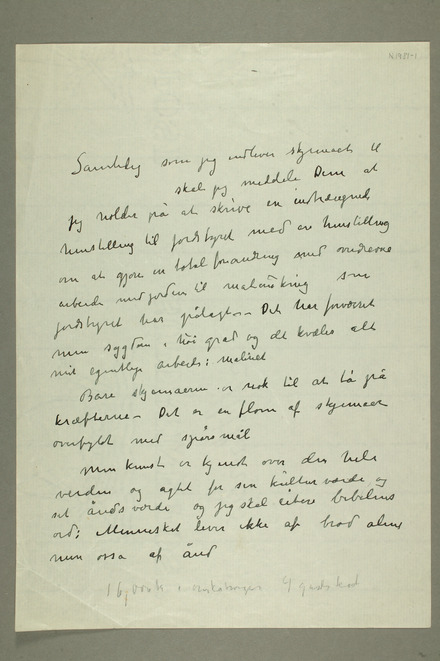 N 1921-1
Samtidig som jeg indlever skjemaet til
skal jeg meddele Dem at
jeg holder på at skrive en indtrængende
henstilling til jordstyret med en henstilling
om at gjøre en total forandring med overdrevne
arbeide med jorden til matdyrkning som
jordstyret har pålagt – Det har forværret
min sygdom i høi grad og det kvæles alt
mit egentlige arbeide i maleriet
Bare skjemaerne er nok til at ta på
kræfterne – Det er en flom af skjemaer
overfyldt med spørsmål
Min kunst er kjendt over den hele
verden og agtet for sin kulturværdi og
sit åndsværdi og jeg skal citere bibelens
ord: Mennesket lever ikke af brød alene
men også af ånd